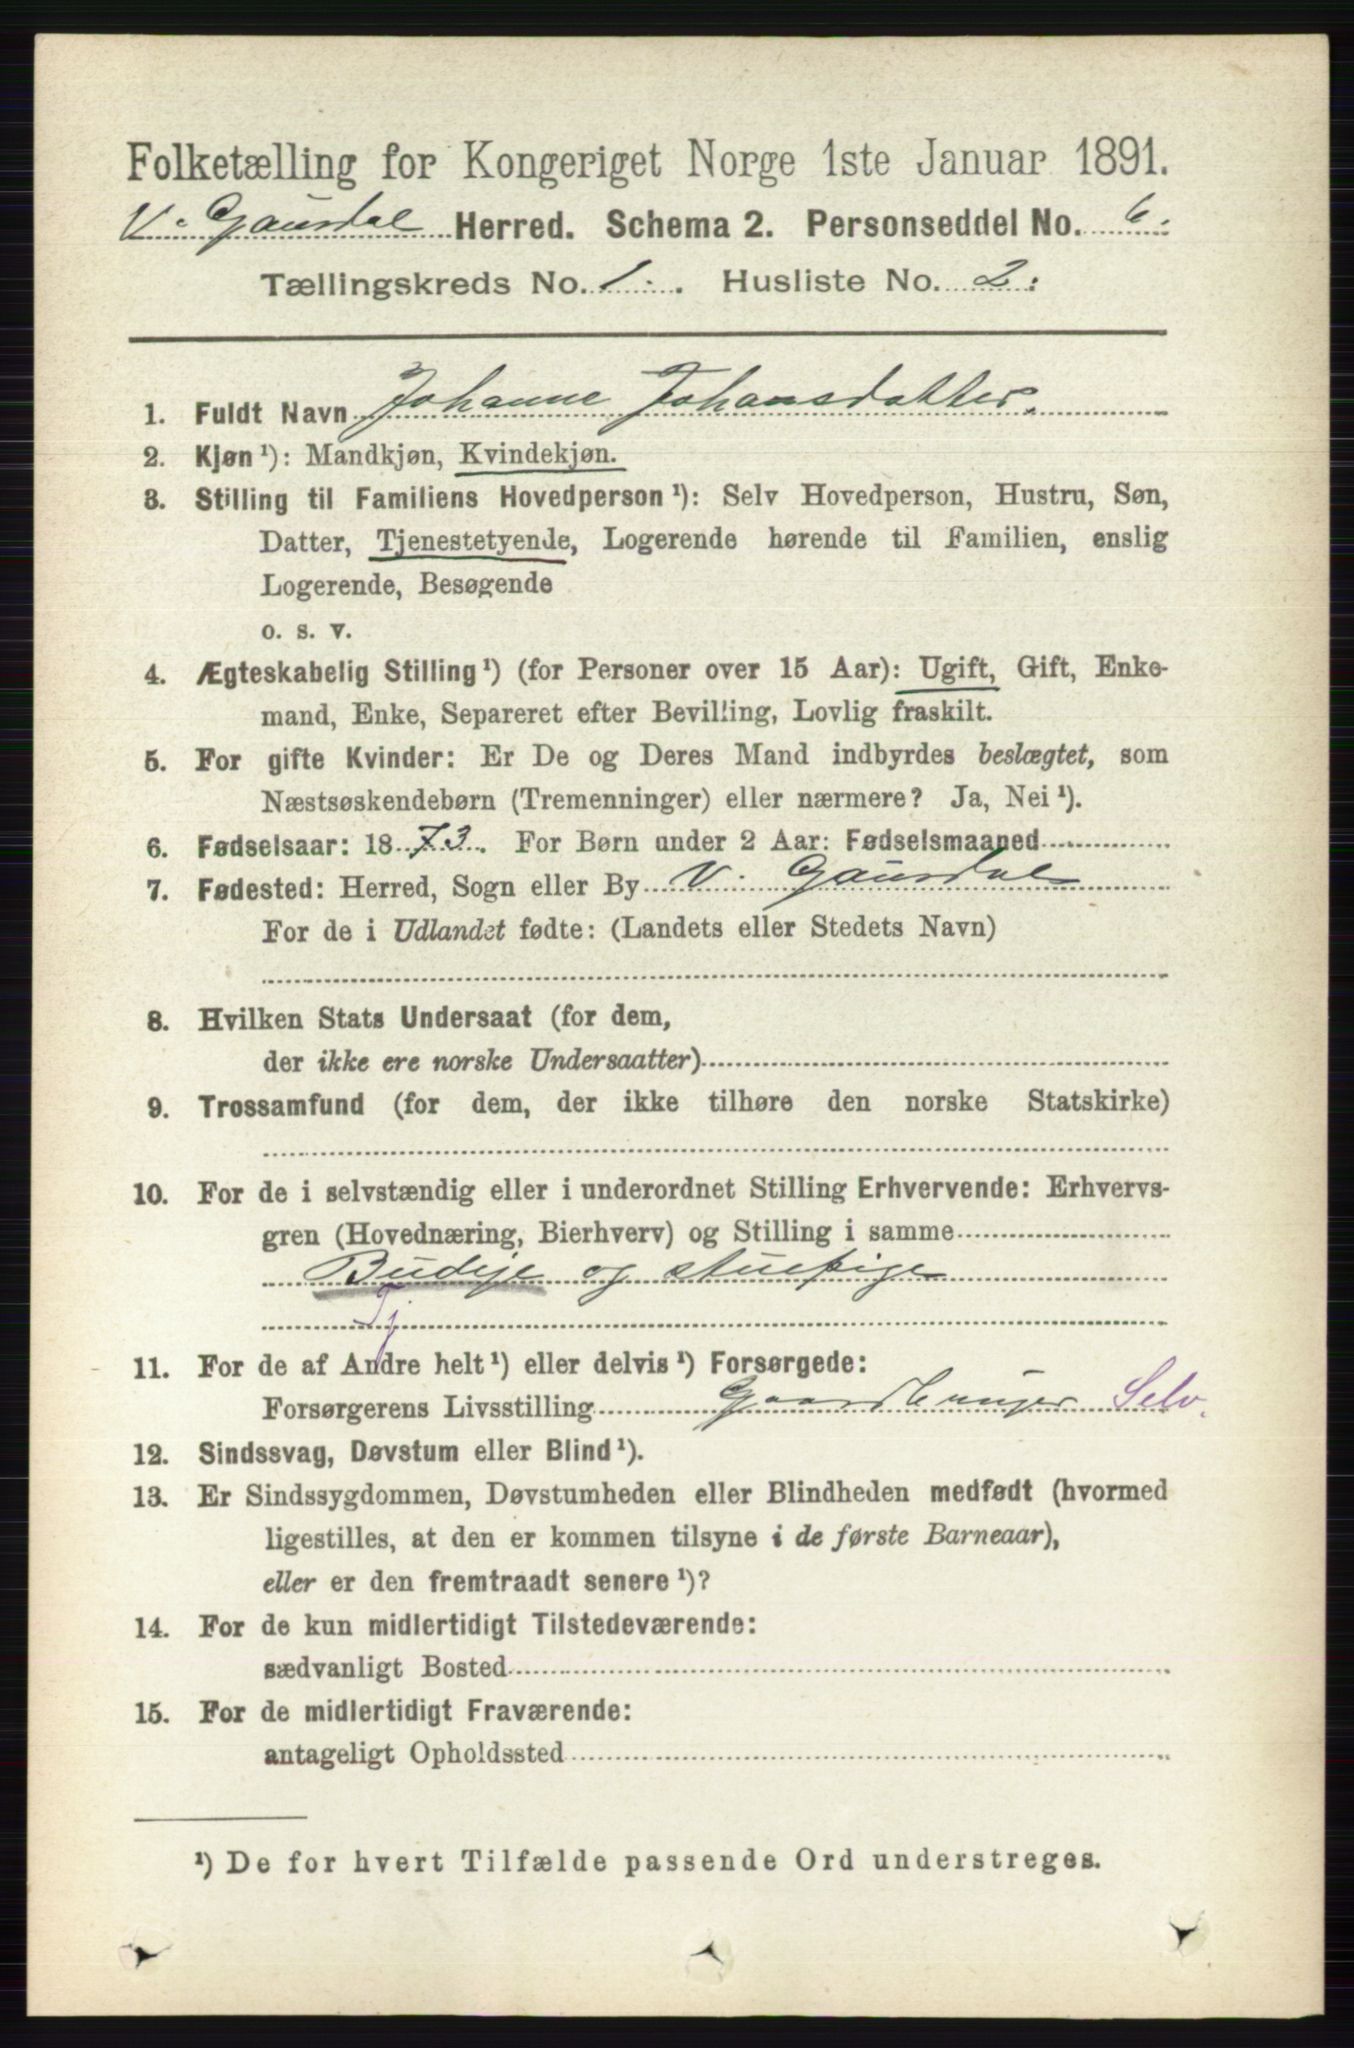 Folketælling for Kongeriget Norge 1ste Januar 1891.
V. Gausdal Herred. Schema 2. Personseddel No. 6.
Tællingskreds No. 1. Husliste No. 2.
1. Fuldt Navn Johanne Johansdatter.
2. Kjøn ¹): Mandkjøn, Kvindekjøn.
3. Stilling til Familiens Hovedperson ¹): Selv Hovedperson, Hustru, Søn,
Datter, Tjenestetyende, Logerende hørende til Familien, enslig
Logerende, Besøgende
o. s. v.
4. Ægteskabelig Stilling ¹) (for Personer over 15 Aar): Ugift, Gift, Enke-
mand, Enke, Separeret efter Bevilling, Lovlig fraskilt.
5. For gifte Kvinder: Er De og Deres Mand indbyrdes beslægtet, som
Næstsøskendebørn (Tremenninger) eller nærmere? Ja, Nei ¹).
6. Fødselsaar: 1873. For Børn under 2 Aar: Fødselsmaaned
7. Fødested: Herred, Sogn eller By V. Gausdal
For de i Udlandet fødte: (Landets eller Stedets Navn)
8. Hvilken Stats Undersaat (for dem,
der ikke ere norske Undersaatter)
9. Trossamfund (for dem, der ikke tilhøre den norske Statskirke)
10. For de i selvstændig eller i underordnet Stilling Erhvervende: Erhvervs-
gren (Hovednæring, Bierhverv) og Stilling i samme
Budeje og stuepige
Tj
11. For de af Andre helt ¹) eller delvis ¹) Forsørgede:
Forsørgerens Livsstilling Gaardbruger Selv.
12. Sindssvag, Døvstum eller Blind ¹).
13. Er Sindssygdommen, Døvstumheden eller Blindheden medfødt (hvormed
ligestilles, at den er kommen tilsyne i de første Barneaar),
eller er den fremtraadt senere ¹)?
14. For de kun midlertidigt Tilstedeværende:
sædvanligt Bosted
15. For de midlertidigt Fraværende:
antageligt Opholdssted
¹) De for hvert Tilfælde passende Ord understreges.